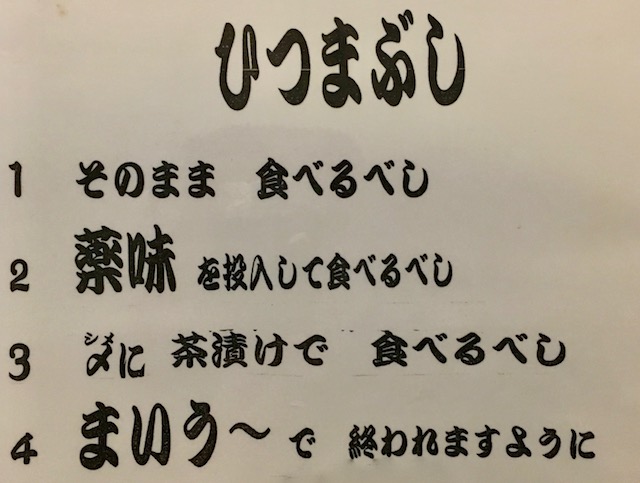 ひつまぶし
1 そのまま 食べるべし
2 薬味を投入して食べるべし
3 〆シメに 茶漬けで 食べるべし
4 まいう〜で 終われますように